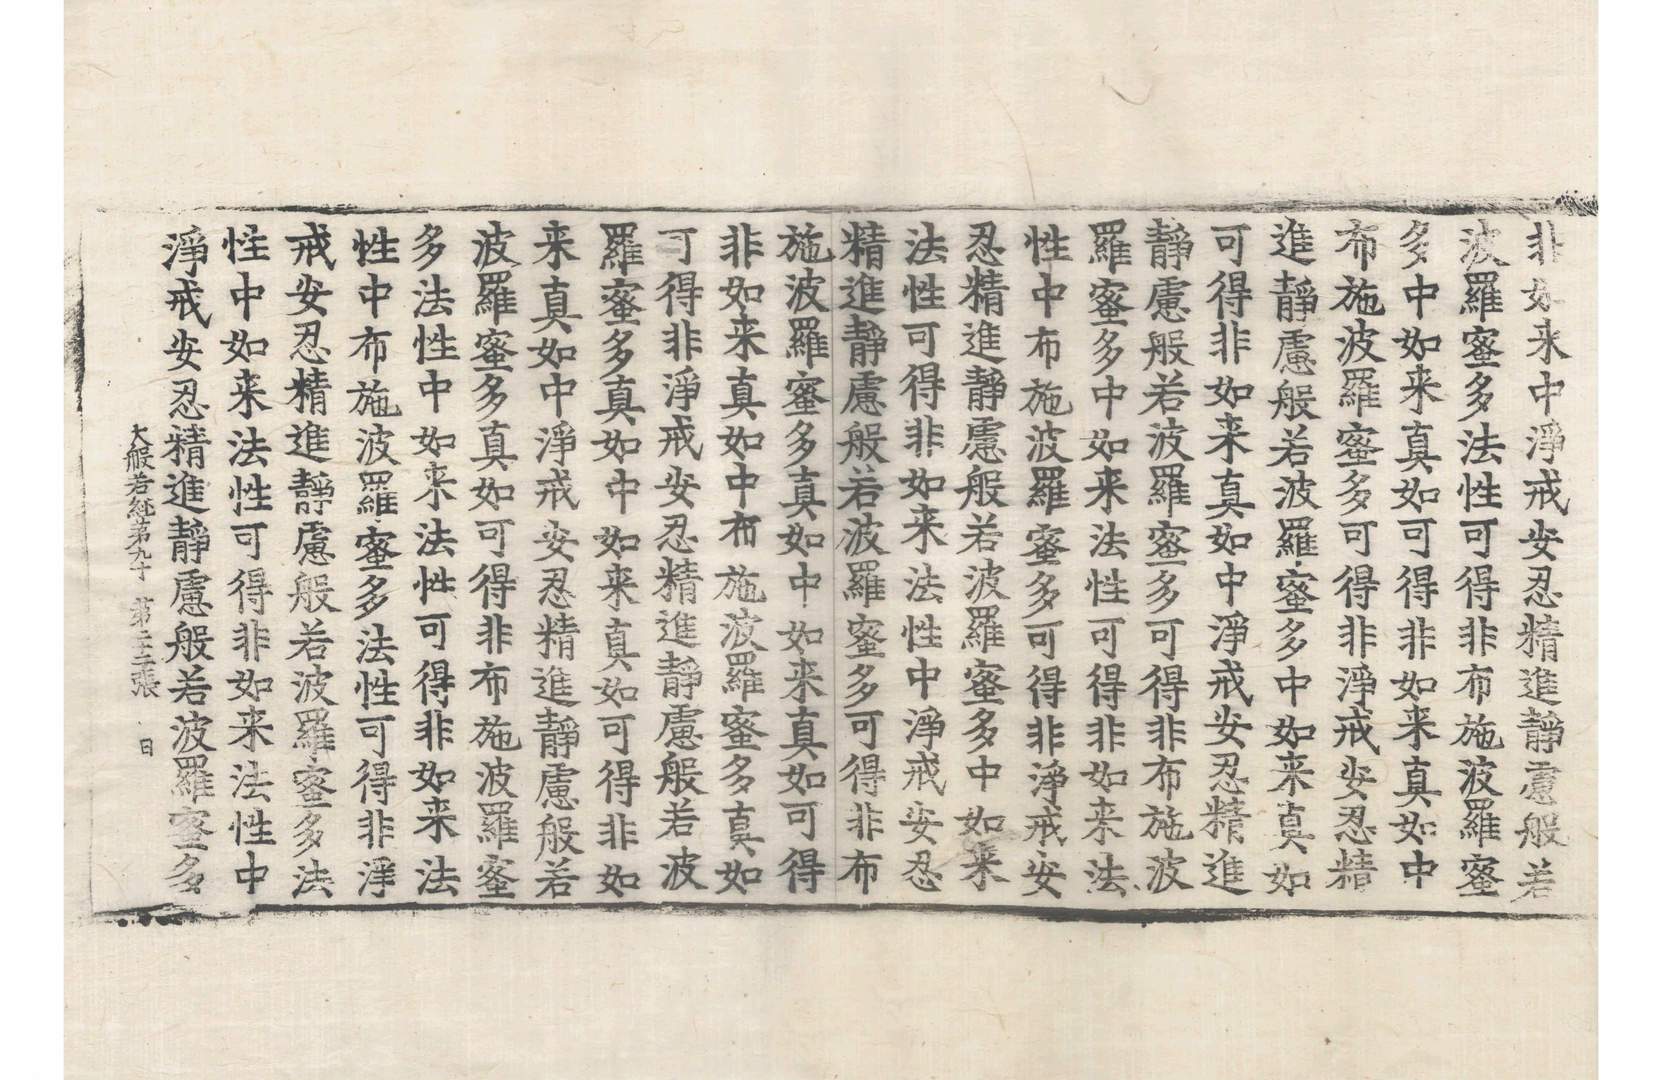 非如来中淨戒安忍精進靜慮般若
波羅蜜多法性可得非布施波羅蜜
多中如来真如可得非如来真如中
布施波羅蜜多可得非淨戒安忍精
進靜慮般若波羅蜜多中如来真如
可得非如来真如中淨戒安忍精進
靜慮般若波羅蜜多可得非布施波
羅蜜多中如来法性可得非如来法
性中布施波羅蜜多可得非淨戒安
忍精進靜慮般若波羅蜜多中如来
法性可得非如来法性中淨戒安忍
精進靜慮般若波羅蜜多可得非布
施波羅蜜多真如中如来真如可得
非如来真如中布施波羅蜜多真如
可得非淨戒安忍精進靜慮般若波
羅蜜多真如中如来真如可得非如
来真如中淨戒安忍精進靜慮般若
波羅蜜多真如可得非布施波羅蜜
多法性中如来法性可得非如来法
性中布施波羅蜜多法性可得非淨
戒安忍精進靜慮般若波羅蜜多法
性中如来法性可得非如来法性中
淨戒安忍精進靜慮般若波羅蜜多
大般若經第九十 第 張 日